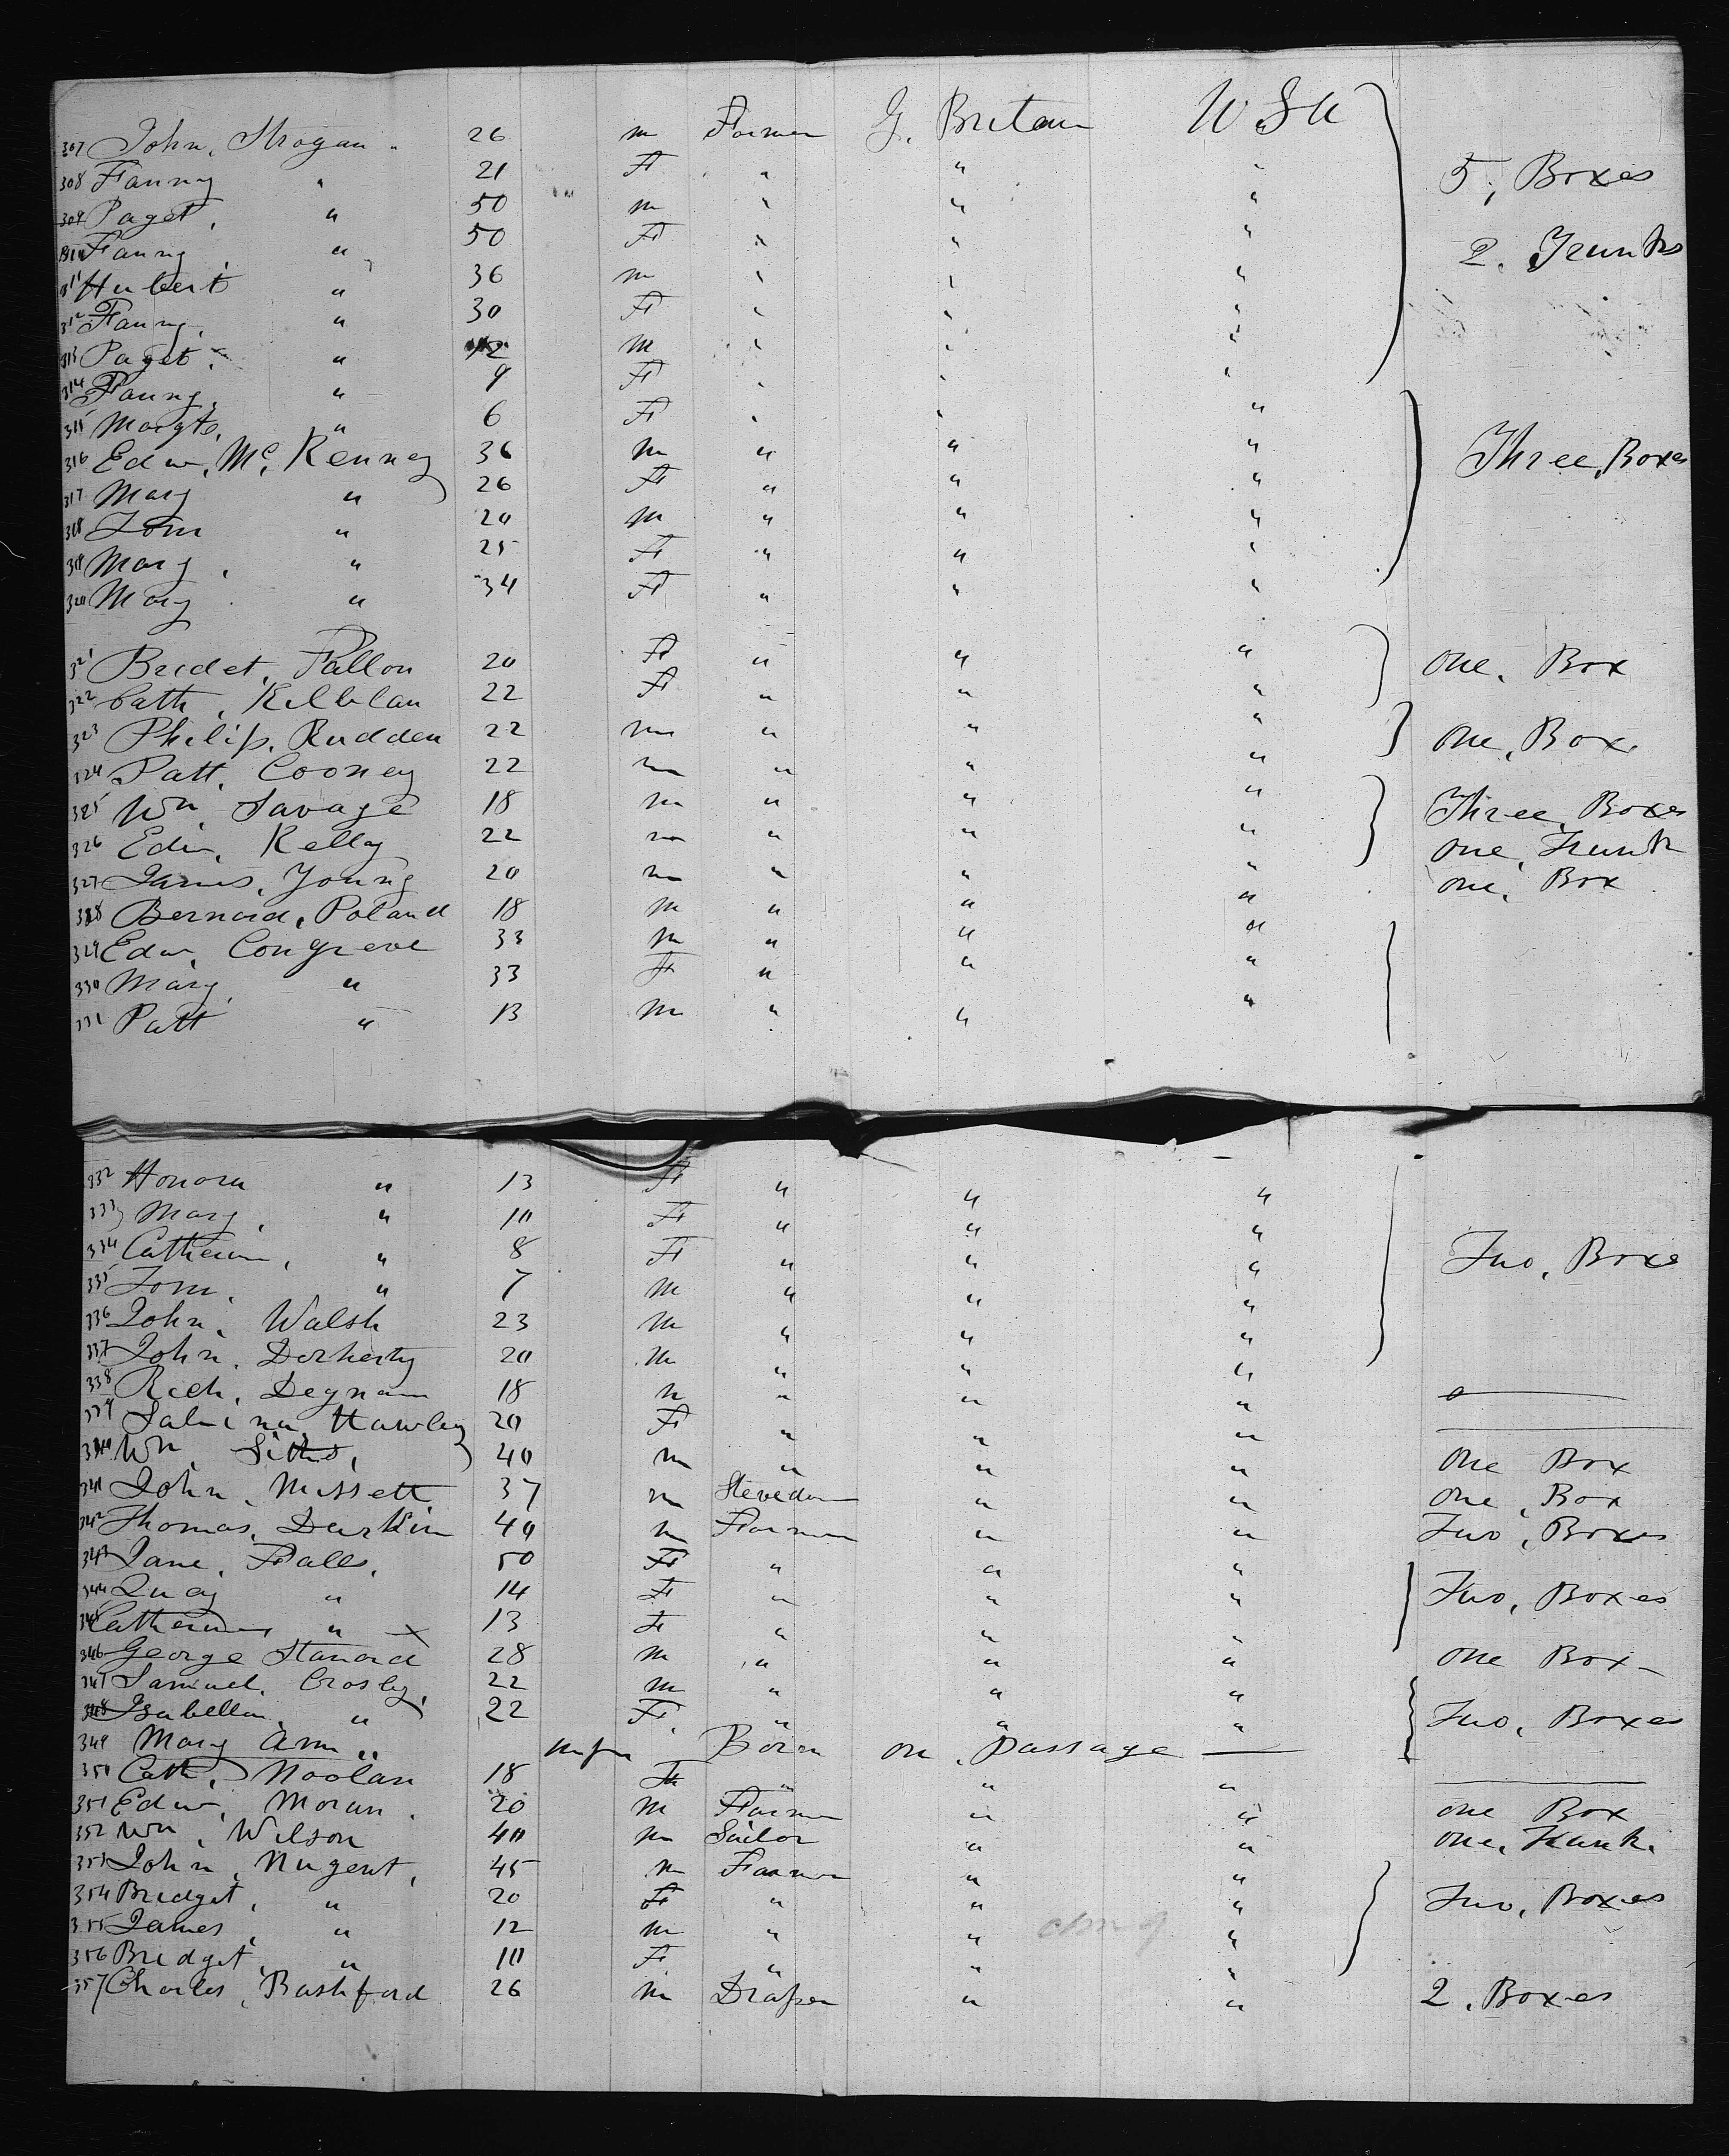 307 John, Hrogan " 26 m Farmer G. Britain U S A
308 Fanny " 21 F " " " 5, Boxes
309 Paget, " 50 m " " "
310 Fanny " 50 F " " " 2. Trunks
311 Hubert " 36 m " " "
312 Fanny, " 30 F " " "
313 Paget. " 12 m " " "
314 Fanny, " 9 F " " "
315 Margt, " 6 F " " "
316 Edw, Mc, Kenney 36 m " " " Three, Boxes
317 Mary " 26 F " " "
318 Tom " 20 m " " "
319 Mary, " 25 F " " "
320 Mary " 34 F " " "
321 Bridet, Fallon 20 F " " " one. Box
322 Cath, Killelan 22 F " " "
323 Philip, Rudden 22 m " " " one, Box
324 Patt, Cooney 22 m " " "
325 Wm Savage 18 m " " " Three, Boxes
326 Edw, Kelly 22 m " " " one, Trunk
327 James, Young 20 m " " " one, Box
328 Bernard, Poland 18 m " " "
329 Edw, Congreve 33 m " " "
330 Mary, " 33 F " " "
331 Patt " 13 m " " "
332 Honora " 13 F " " "
333 Mary, " 10 F " " "
334 Catherin, " 8 F " " " Two, Boxe
335 Tom, " 7 m " " "
336 John, Walsh 23 m " " "
337 John, Dorherty 20 m " " "
338 Rich, Degnam 18 m " " "
339 Salina, Hawley 20 F " " "
340 Wm, 40 m " " " one Box
341 John, Missett 37 m Stevedore " " one, Box
342 Thomas, Durkin 40 m Farmer " " Two, Boxes
343 Jane, Falls, 50 F " " "
344 " 14 F " " " Two, Boxes
345 Catherin " x 13 F " " "
346 George Stanard 28 m " " " one Box
347 Samuel, Crosley, 22 m " " "
348 Isabella, " 22 F " " " Two, Boxes
349 Mary Ann " Born on, Passage
350 Cath, Noolan 18 F " " "
351 Edw, Moran 20 m Farmer " " one Box
352 Wm, Wilson 40 m Sailor " " one, Trunk.
353 John, Nugent, 45 m Farmer " "
354 Bridget, " 20 F " " " Two, Boxes
355 James, " 12 m " " "
356 Bridget, " 10 F " " "
357 Charles, Bashford 26 m Draper " " 2. Boxes